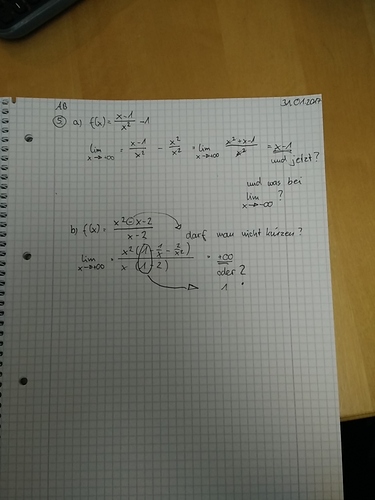 AB
31.01.2017
⑤ a) f(x) = x-1/x² -1
lim x→+∞ = x-1/x² - x²/x² = lim x→+∞ x²+x-1/x² = x-1
und jetzt?
und was bei
lim x→-∞ ?
b) f(x) = x²-x-2/x-2
darf man nicht kürzen?
lim x→+∞ = x²(1-1/x-2/x²)/x(1-2) = +∞
oder ?
1